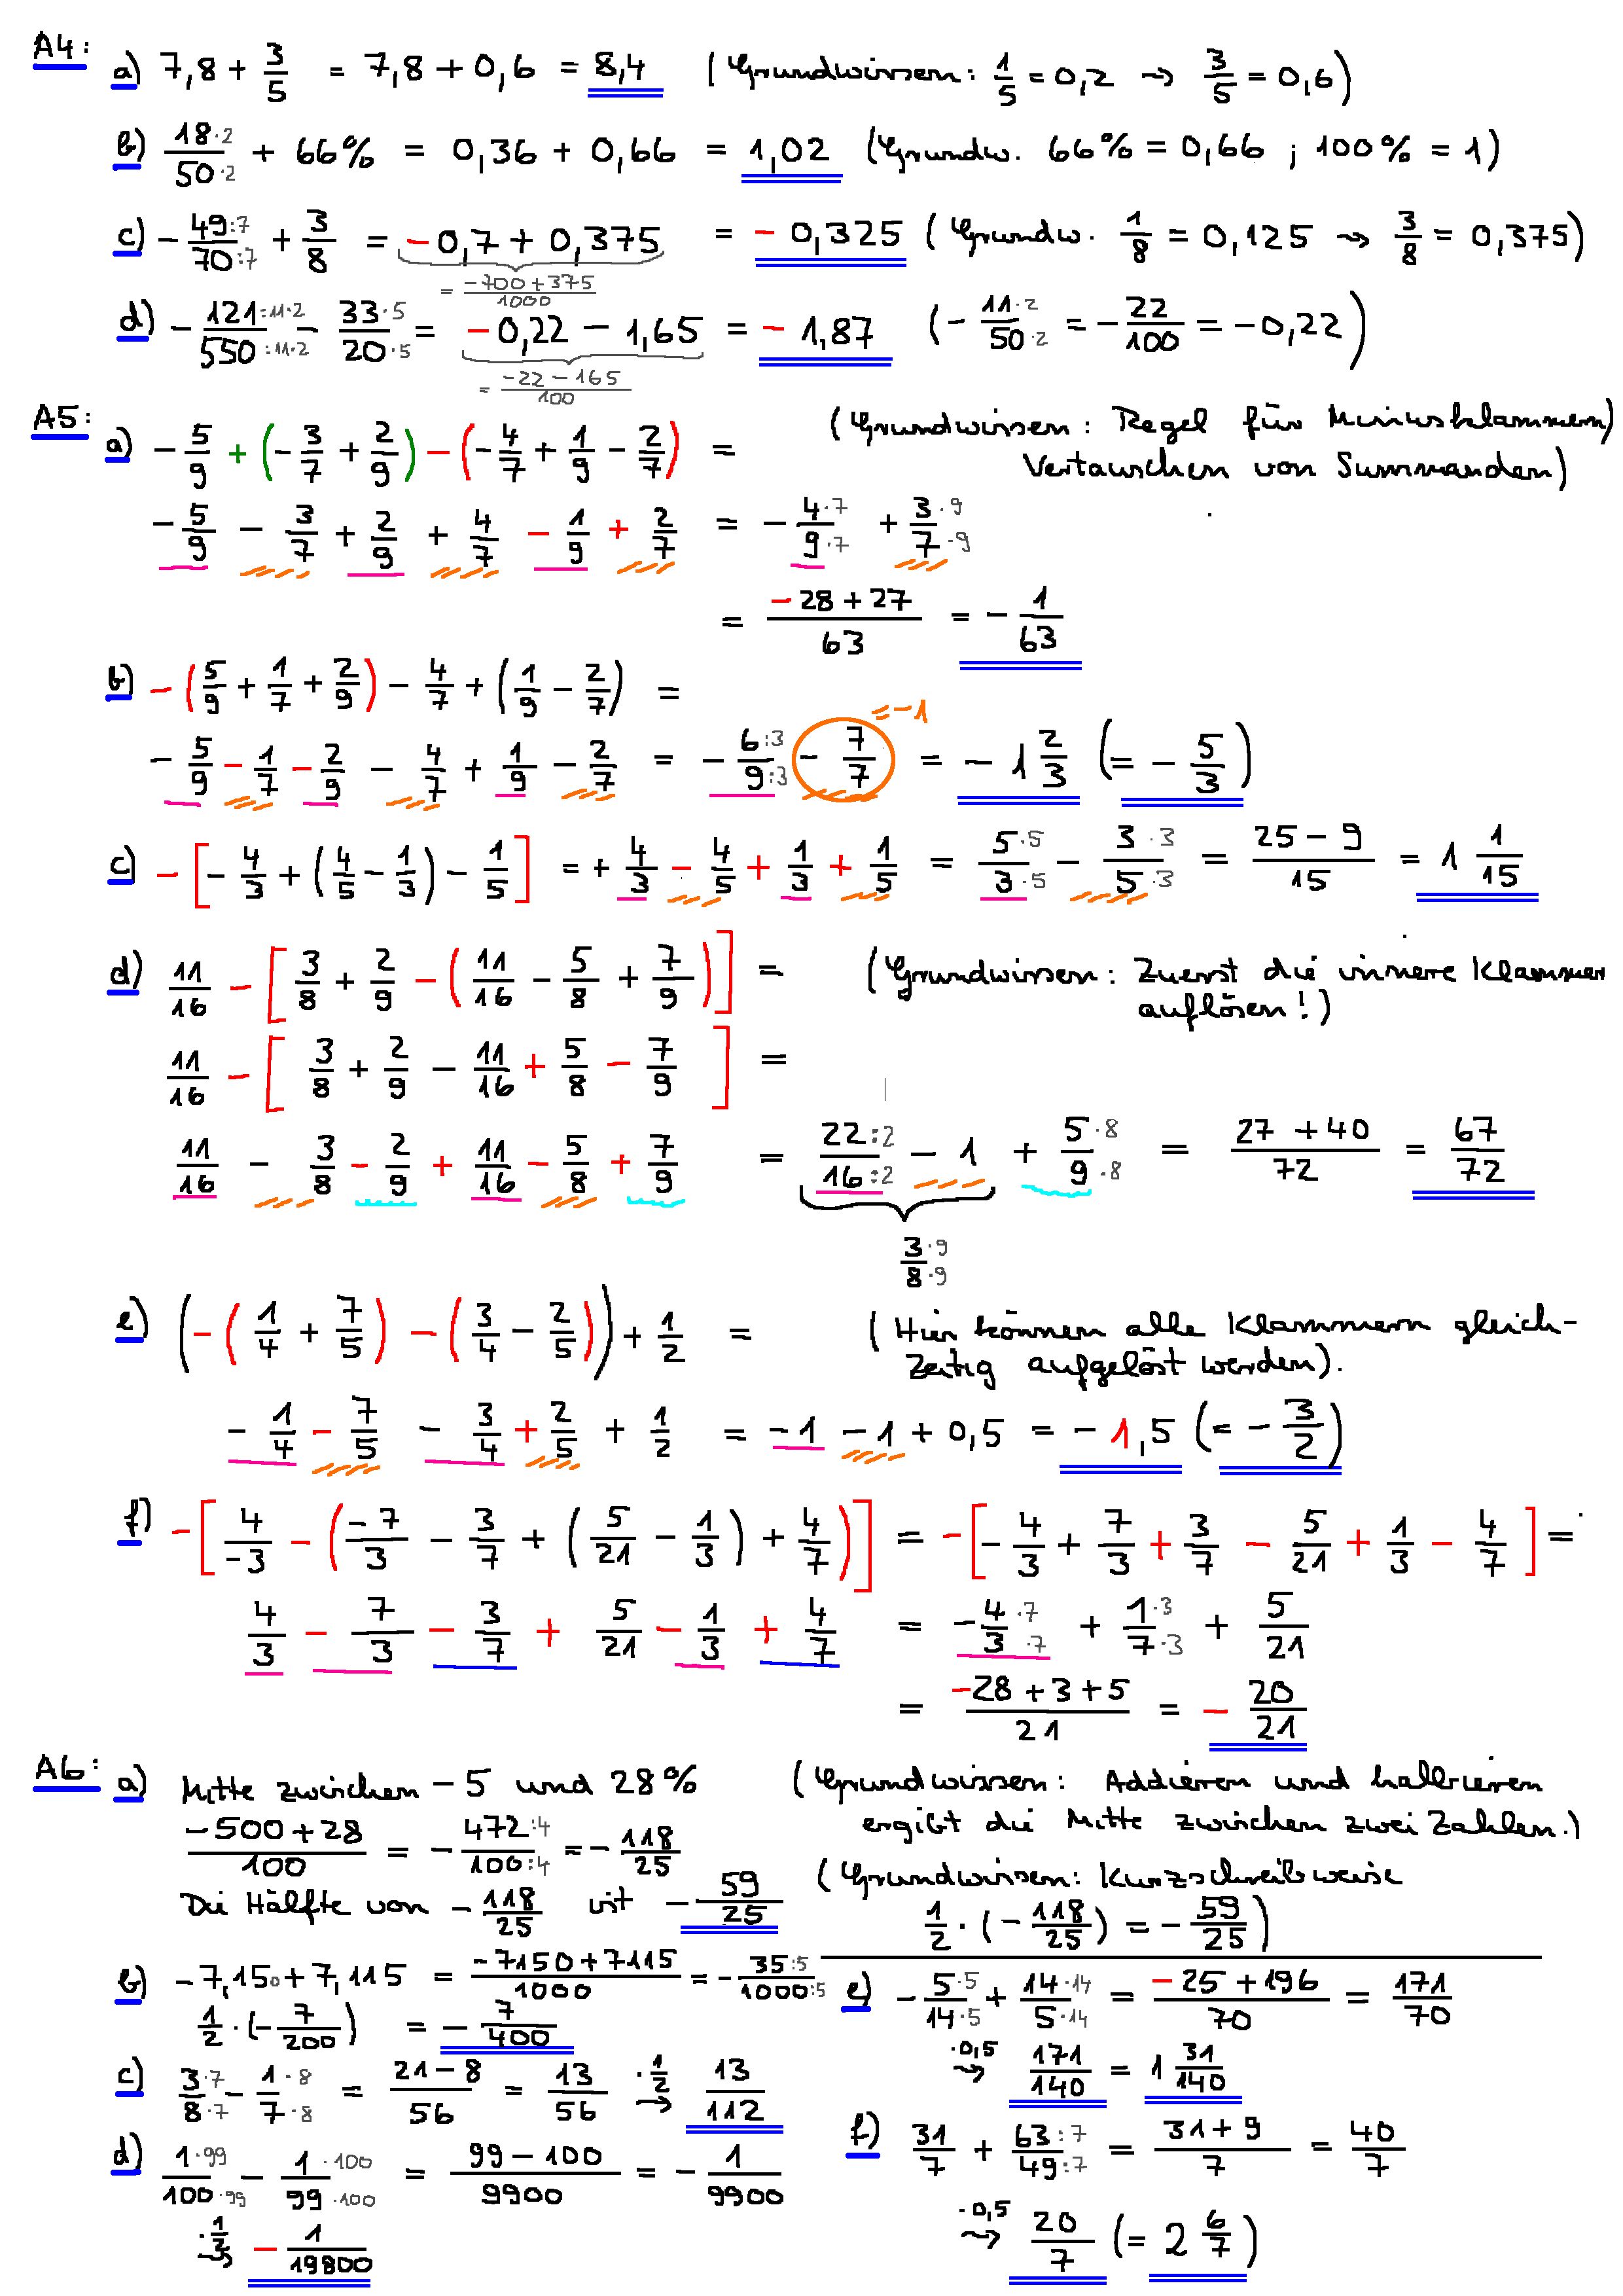 A4: a) 7,8 + 3/5 = 7,8 + 0,6 = 8,4 (Grundwissen: 1/5 = 0,2 → 3/5 = 0,6)
b) 18·2/50·2 + 66% = 0,36 + 0,66 = 1,02 (Grundw. 66% = 0,66 ; 100% = 1)
c) - 49:7/70:7 + 3/8 = -0,7 + 0,375 = - 0,325 (Grundw. 1/8 = 0,125 → 3/8 = 0,375)
= -700 + 375/1000
d) - 121:11·2/550:11·2 - 33·5/20·5 = -0,22 - 1,65 = - 1,87 (- 11·2/50·2 = - 22/100 = -0,22)
= -22 - 165/100
A5: a) - 5/9 + (- 3/7 + 2/9) - (- 4/7 + 1/9 - 2/7) = (Grundwissen: Regel für Minusklammern)
Vertauschen von Summanden)
- 5/9 - 3/7 + 2/9 + 4/7 - 1/9 + 2/7 = - 4·7/9·7 + 3·9/7·9
= -28 + 27/63 = - 1/63
b) - (5/9 + 1/7 + 2/9) - 4/7 + (1/9 - 2/7) =
= -1
- 5/9 - 1/7 - 2/9 - 4/7 + 1/9 - 2/7 = - 6:3/9:3 - 7/7 = - 1 2/3 (= - 5/3)
c) - [- 4/3 + (4/5 - 1/3) - 1/5] = + 4/3 - 4/5 + 1/3 + 1/5 = 5·5/3·5 - 3·3/5·3 = 25 - 9/15 = 1 1/15
d) 11/16 - [3/8 + 2/9 - (11/16 - 5/8 + 7/9)] = (Grundwissen: Zuerst die innere Klammer
auflösen!)
11/16 - [3/8 + 2/9 - 11/16 + 5/8 - 7/9] =
11/16 - 3/8 - 2/9 + 11/16 - 5/8 + 7/9 = 22:2/16:2 - 1 + 5·8/9·8 = 27 + 40/72 = 67/72
3·9/8·9
e) (- (1/4 + 7/5) - (3/4 - 2/5)) + 1/2 = (Hier können alle Klammern gleich-
zeitig aufgelöst werden).
- 1/4 - 7/5 - 3/4 + 2/5 + 1/2 = -1 - 1 + 0,5 = - 1,5 (= - 3/2)
f) - [4/-3 - (-7/3 - 3/7 + (5/21 - 1/3) + 4/7)] = - [- 4/3 + 7/3 + 3/7 - 5/21 + 1/3 - 4/7] =
4/3 - 7/3 - 3/7 + 5/21 - 1/3 + 4/7 = - 4·7/3·7 + 1·3/7·3 + 5/21
= -28 + 3 + 5/21 = - 20/21
A6: a) Mitte zwischen - 5 und 28% (Grundwissen: Addieren und halbieren
ergibt die Mitte zwischen zwei Zahlen.)
-500 + 28/100 = - 472:4/100:4 = - 118/25
Die Hälfte von - 118/25 ist - 59/25 (Grundwissen: Kurzschreibweise
1/2 · (- 118/25) = - 59/25)
b) -7,150 + 7,115 = -7150 + 7115/1000 = - 35:5/1000:5
1/2 · (- 7/200) = - 7/400
c) 3·7/8·7 - 1·8/7·8 = 21 - 8/56 = 13/56 ·1/2 → 13/112
d) 1·99/100·99 - 1·100/99·100 = 99 - 100/9900 = - 1/9900
·1/2 → - 1/19800
e) - 5·5/14·5 + 14·14/5·14 = - 25 + 196/70 = 171/70
·0,5 → 171/140 = 1 31/140
f) 31/7 + 63:7/49:7 = 31 + 9/7 = 40/7
·0,5 → 20/7 (= 2 6/7)